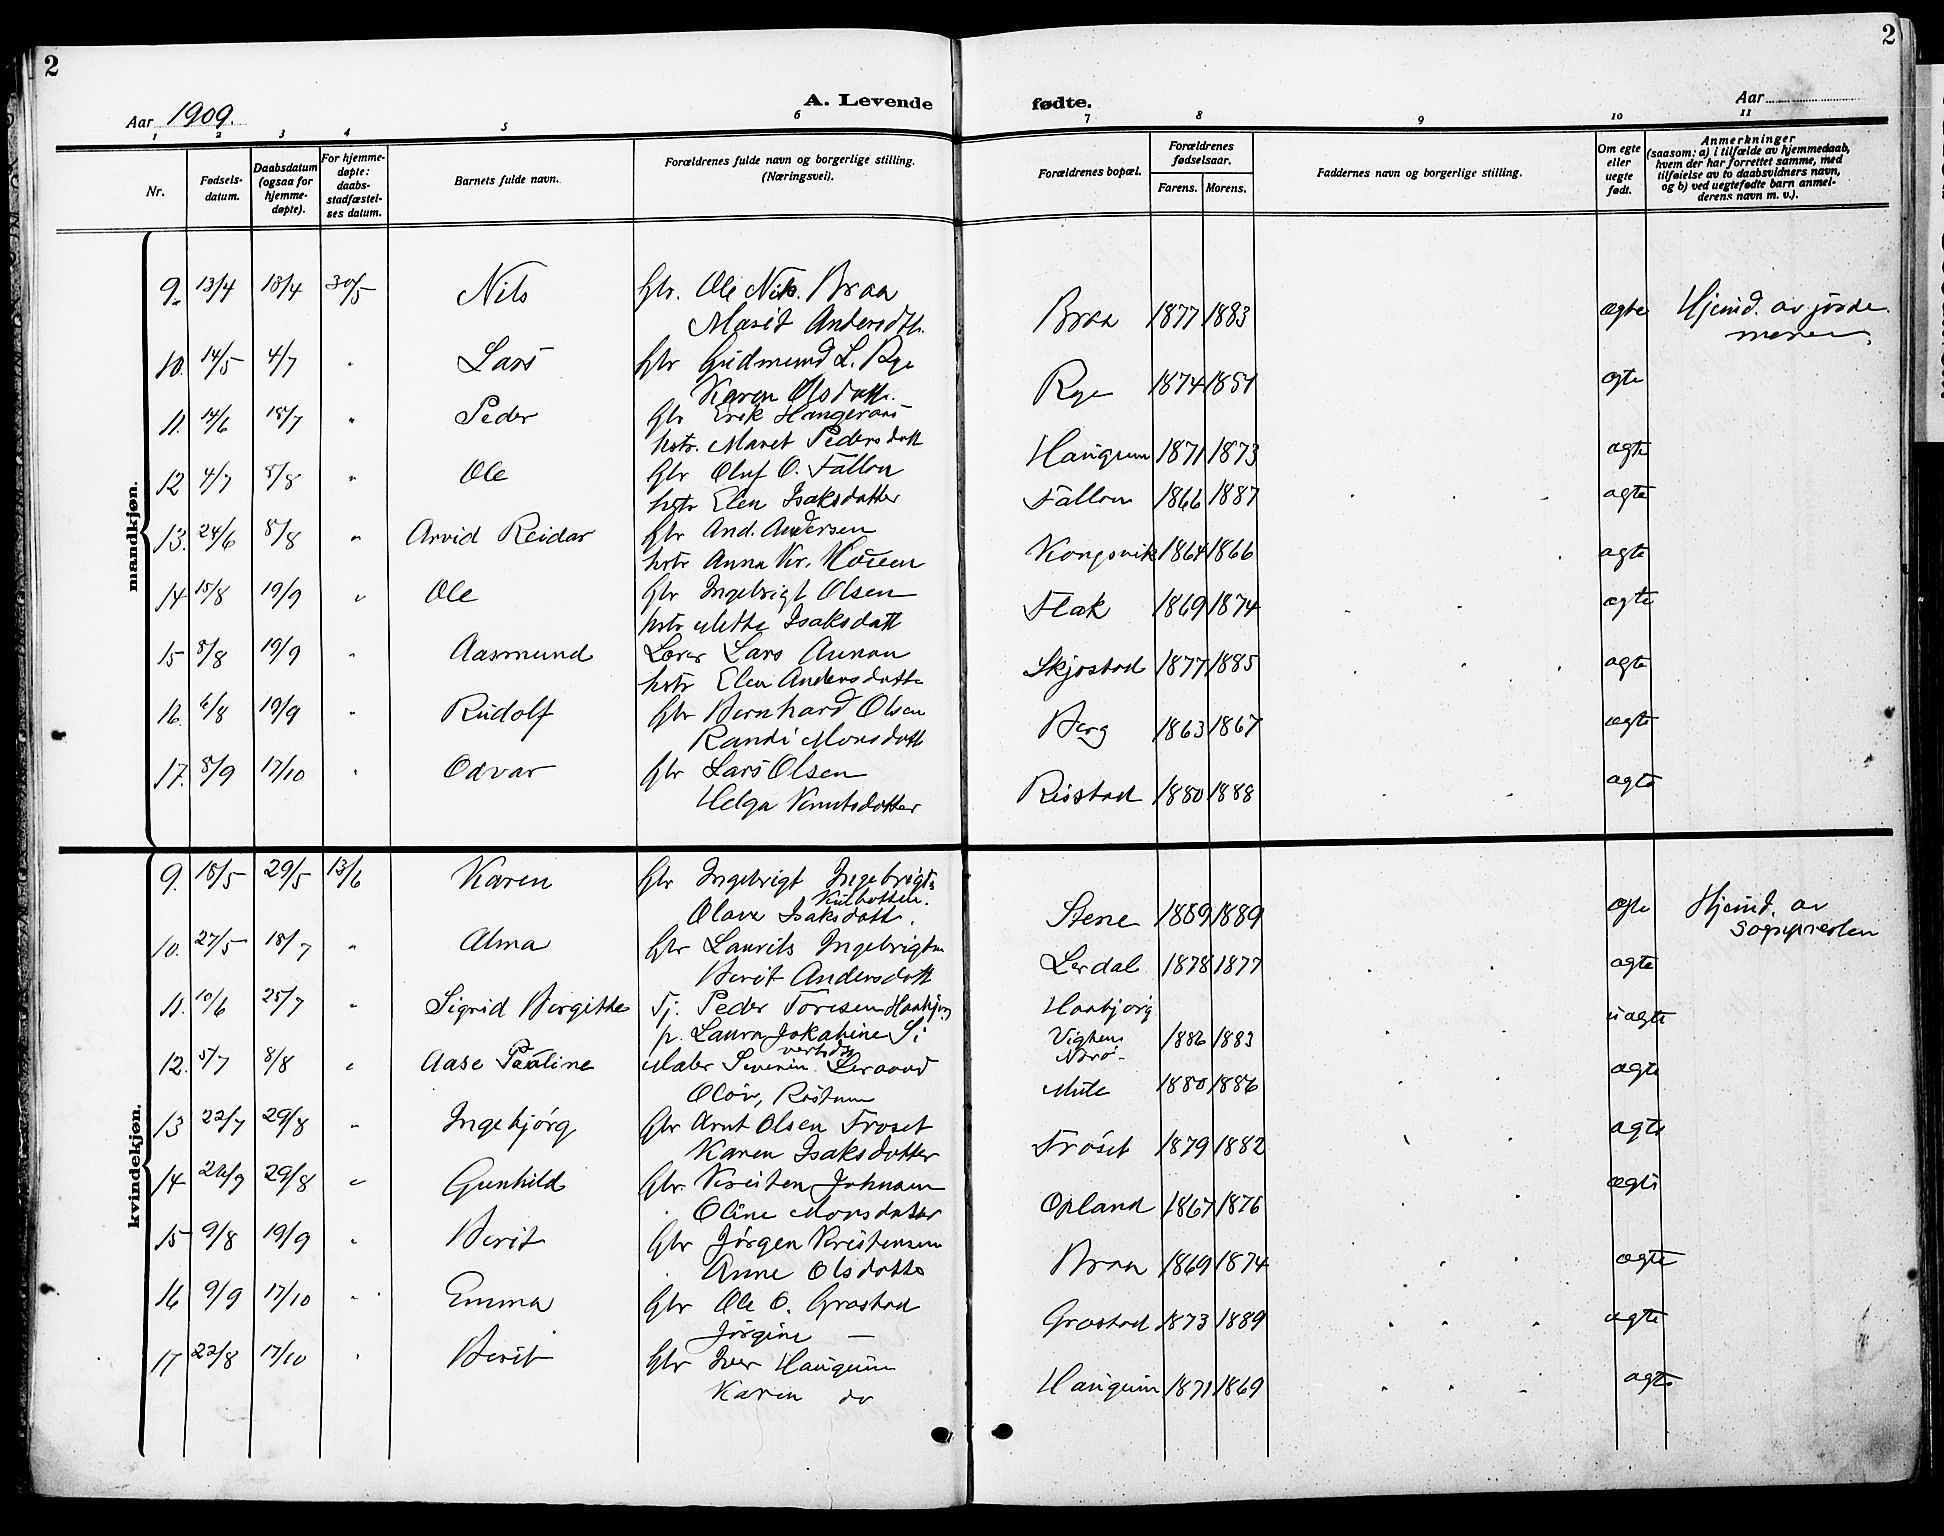 2
2
Aar 1909.
A. Levende
fødte.
Aar
1 2 3 4 5 6 7 8 9 10 11
Nr.
Fødsels-
datum.
Daabsdatum
(ogsaa for
hjemme-
døpte).
For hjemme-
døpte:
daabs-
stadfæstel-
ses datum.
Barnets fulde navn.
Forældrenes fulde navn og borgerlige stilling.
(Næringsvei).
Forældrenes bopæl.
Forældrenes
fødselsaar.
Farens. Morens.
Faddernes navn og borgerlige stilling.
Om egte
eller
uegte
født.
Anmerkninger
(saasom: a) i tilfælde av hjemmedaab,
hvem der har forrettet samme, med
tilføielse av to daabsvidners navn,
og b) ved uegtefødte barn anmel-
derens navn m. v.).
mandkjøn.
9. 13/4 13/4 30/5 Nils Gbr. Ole Nils. Braa
Marit Andersdtr. Braa 1877 1883 ægte Hjemd. av jorde-
moren.
10. 14/5 4/7 " Lars Gbr Gudmund L. Rye
Karen Olsdattr. Rye 1874 1851 ægte
11. 14/6 18/7 " Peder Gbr Erik
hstr. Maret Pedersdatt Haugum 1871 1873 ægte
12 4/7 8/8 " Ole Gbr Oluf O. Fallon
hstr Elen Isaksdatter Fallon 1866 1887 ægte
13. 24/6 8/8 " Arvid Reidar Gbr And. Andersen
hstr Anna Kr. Kongsvik 1864 1866 ægte
14 15/8 19/9 " Ole Gbr Ingebrigt Olsen
hstr Mette Isaksdatt Flak 1869 1874 ægte
15 8/8 19/9 " Aasmund Lærer Lars Aunan
hstr Elen Andersdatter Skjøstad 1877 1885 ægte
16. 6/8 19/9 " Rudolf Gbr Bernhard Olsen
Randi Monsdatt Berg 1863 1867 ægte
17. 8/9 17/10 " Odvar Gbr Lars Olsen
Helga Knutsdatter Ristad 1880 1888 ægte
kvindekjøn.
9. 18/5 29/5 13/6 Karen Gbr Ingebrigt Ingebrigts
Olava Isaksdattr. Stene 1889 1889 ægte Hjemd. av
Sognepresten
10. 27/5 18/7 " Alma Gbr Laurits Ingebrigtsn
Berit Andersdatt Lerdal 1878 1877 ægte
11. 10/6 25/7 " Sigrid Bergitte Tj. Peder Toresen Haabjørg
p. Laura Jokabine S: Haabjørg
1886 1883 uægte
12. 5/7 8/8 " Aase Pauline Maler Severin Leraand
1880 1886 ægte
13 22/7 29/8 " Ingebjørg Gbr Arnt Olsen Frøset
Karen Isaksdatter Frøset 1879 1882 ægte
14 29/8 " Gunhild Gbr. Kristen Johnsen
Oline Monsdatter Opland 1867 1876 ægte
15 9/8 19/9 " Berit Gbr Jørgen Kristensen
Anne Olsdatter Braa 1869 1874 ægte
16 9/9 17/10 " Emma Gbr Ole O. Grostad
Jørgine — Grostad 1873 1889 ægte
17 22/8 17/10 " Berit Gbr Iver Haugum
Karen do Haugum 1871 1869 ægte